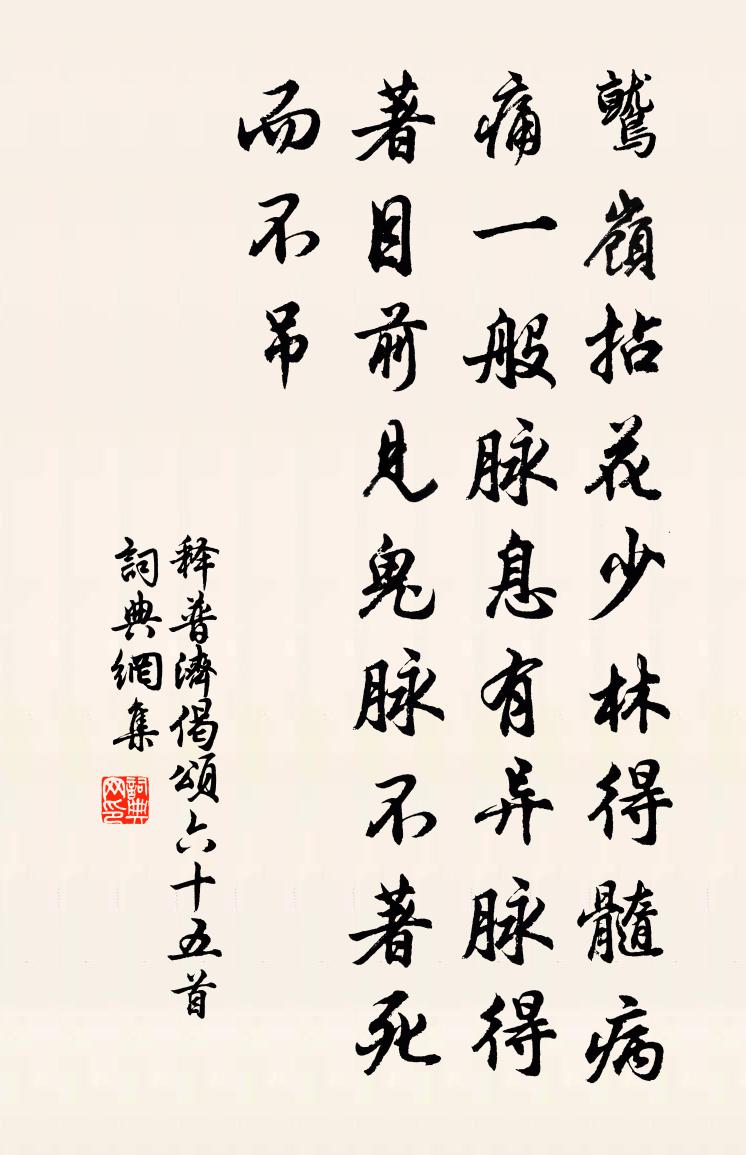 鷲嶺拈花少林得髓病
痛一般脉息有异脉得
著目前見鬼脉不著死
而不吊
释普濟偈頌六十五首
詞典網集
詞典网印